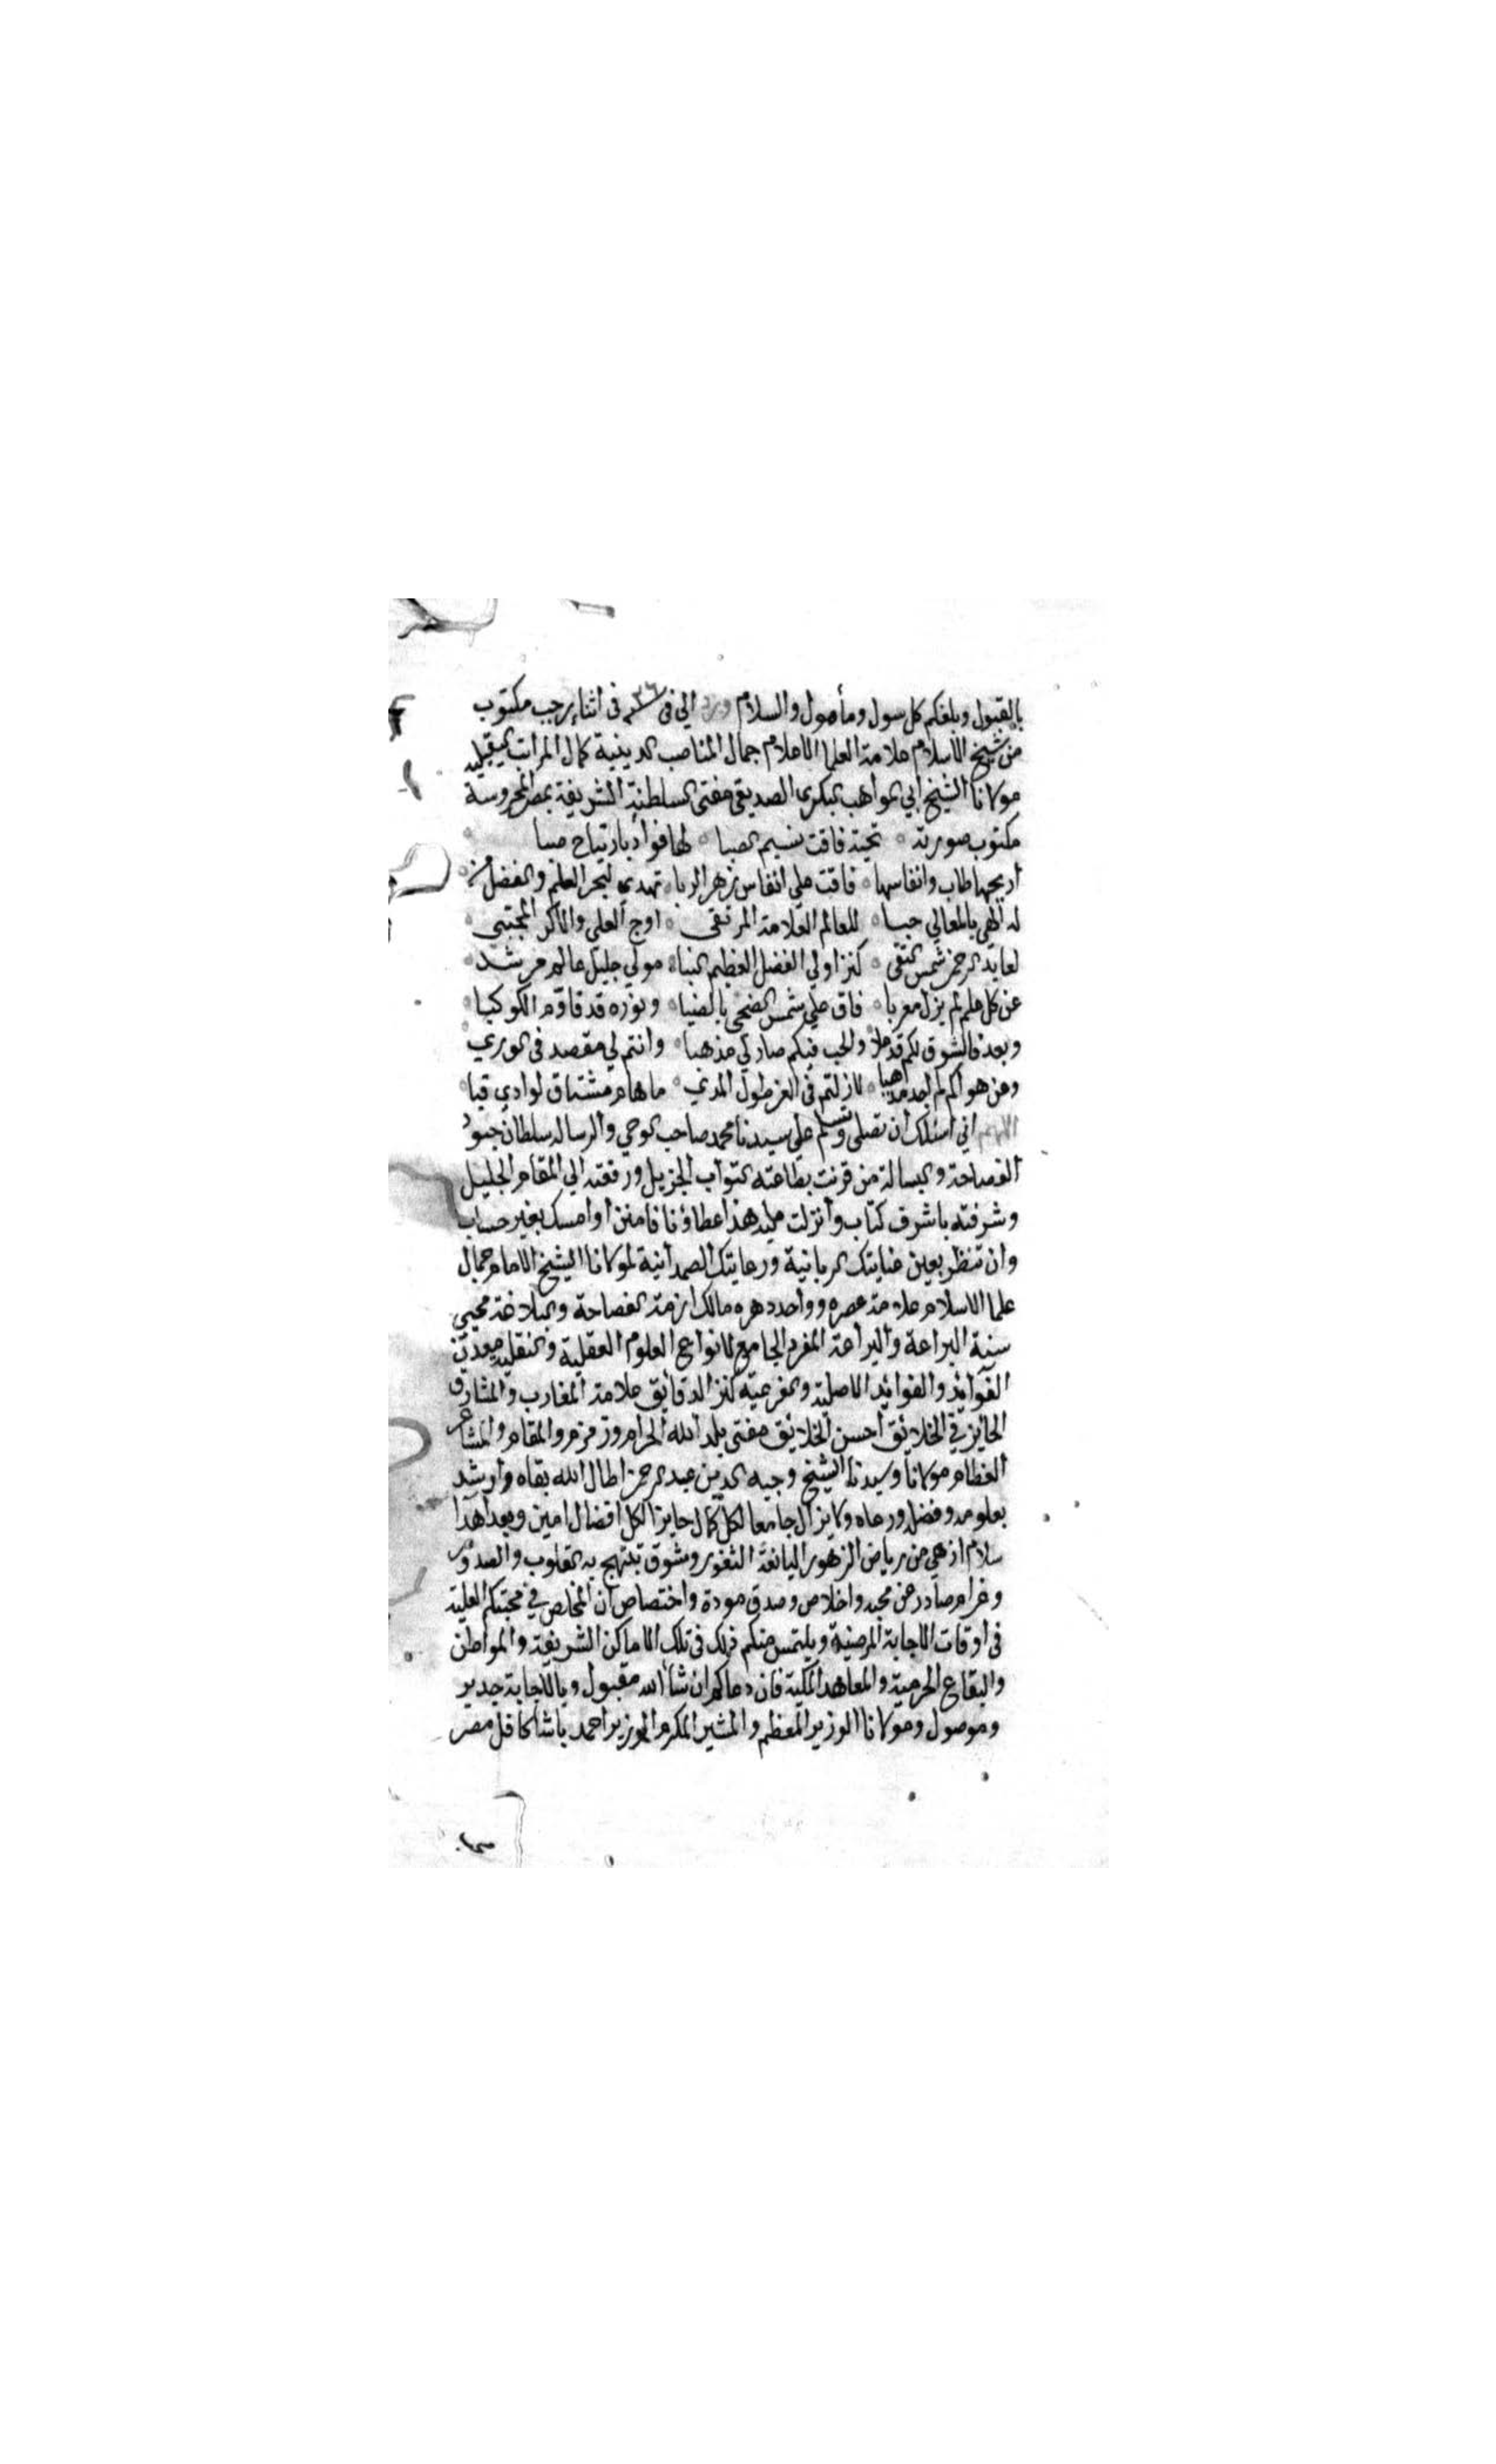 بالقبول وبلغكم كل سول ومأمول والسلام ورد الي في ٣٦ في اثناء رجب مكتوب
من شيخ الاسلام علامة العلما الاعلام جمال المناصب الدينية كمال المراتب
مولانا الشيخ ابي المواهب البكري الصديقي مفتي السلطنة الشريفة بمصر المحروسة
مكتوب صورته تحية فاقت نسيم الصبا لها فؤاد بارتياح صبا
أريجها طاب وانفاسها فاقت علي انفاس زهر الربا تهدي لبحر العلم والفضل من
له الهي بالمعالي حبا للعالم العلامة المرتقي اوج العلي والاكر المجتبي
لعابد الرحمن شمس التقى كنز اولي الفضل العظيم النبا مولي جليل عالم مرشد
عن كل علم لم يزل معربا فاق علي شمس الضحى بالضيا ونوره قد قاوم الكوكبا
وبعد فالشوق لكم قد علا والحب فيكم صار لي مذهبا وانتم لي مقصد في الوري
وعن هواكم لم اجد مذهبا لازلتم في العز طول المدي ما هام مشتاق لوادي قبا
اللهم اني اسئلك أن تصلي وتسلم علي سيدنا محمد صاحب الوحي والرسالة سلطان جنود
الفصاحة والبسالة من قرنت بطاعته الثواب الجزيل ورفعته الي المقام الجليل
وشرفته باشرف كتاب وأنزلت عليه هذا عطاؤنا فامنن أوامسك بغير حساب
وان تنظر بعين عنايتك الربانية ورعايتك الصمدانية لمولانا الشيخ الامام جمال
علما الاسلام علامة عصره وواحد دهره مالك ازمة الفصاحة والبلاغة محيي
سنة البراعة واليراعة المفرد الجامع لانواع العلوم العقلية والنقلية معدن
الفوائد والفوائد الاصلية والفرعية كنز الدقايق علامة المغارب والمشارق
الحايز في الخلائق أحسن الخلايق مفتي بلد الله الحرام وزمزم والمقام والمشاعر
العظام مولانا وسيدنا الشيخ وجيه الدين عبد الرحمن اطال الله بقاه وأرشد
بعلومه وفضله ورعاه ولا يزال جامعا لكل كمال حايزا لكل افضال امين وبعد اهدا
سلام ازهي من رياض الزهور اليانعة الثغور وشوق تبتهج به القلوب والصدور
وغرام صادر عن محبه واخلاص وصدق مودة واختصاص أن المخلص في محبتكم العلية
في اوقات الاجابة المرضية ويلتمس منكم ذلك في تلك الاماكن الشريفة والمواطن
والبقاع الحرمية والمعاهد المكية فان دعاكم ان شا الله مقبول وبالاجابة جدير
وموصول ومولانا الوزير المعظم والمشير المكرم الوزير احمد باشا كافل مصر